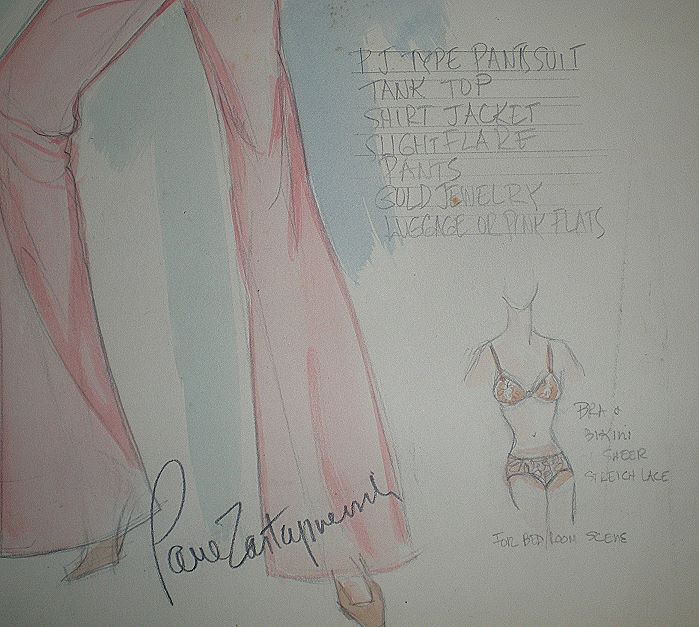 PJ TYPE PANTSSUIT
TANK TOP
SHIRT JACKET
SLIGHT FLARE
PANTS
GOLD JEWELRY
LUGGAGE OR PINK FLATS
BRA &
BIKINI
SHEER
STRETCH LACE
FOR BEDROOM SCENE
Paul Zastupnevich